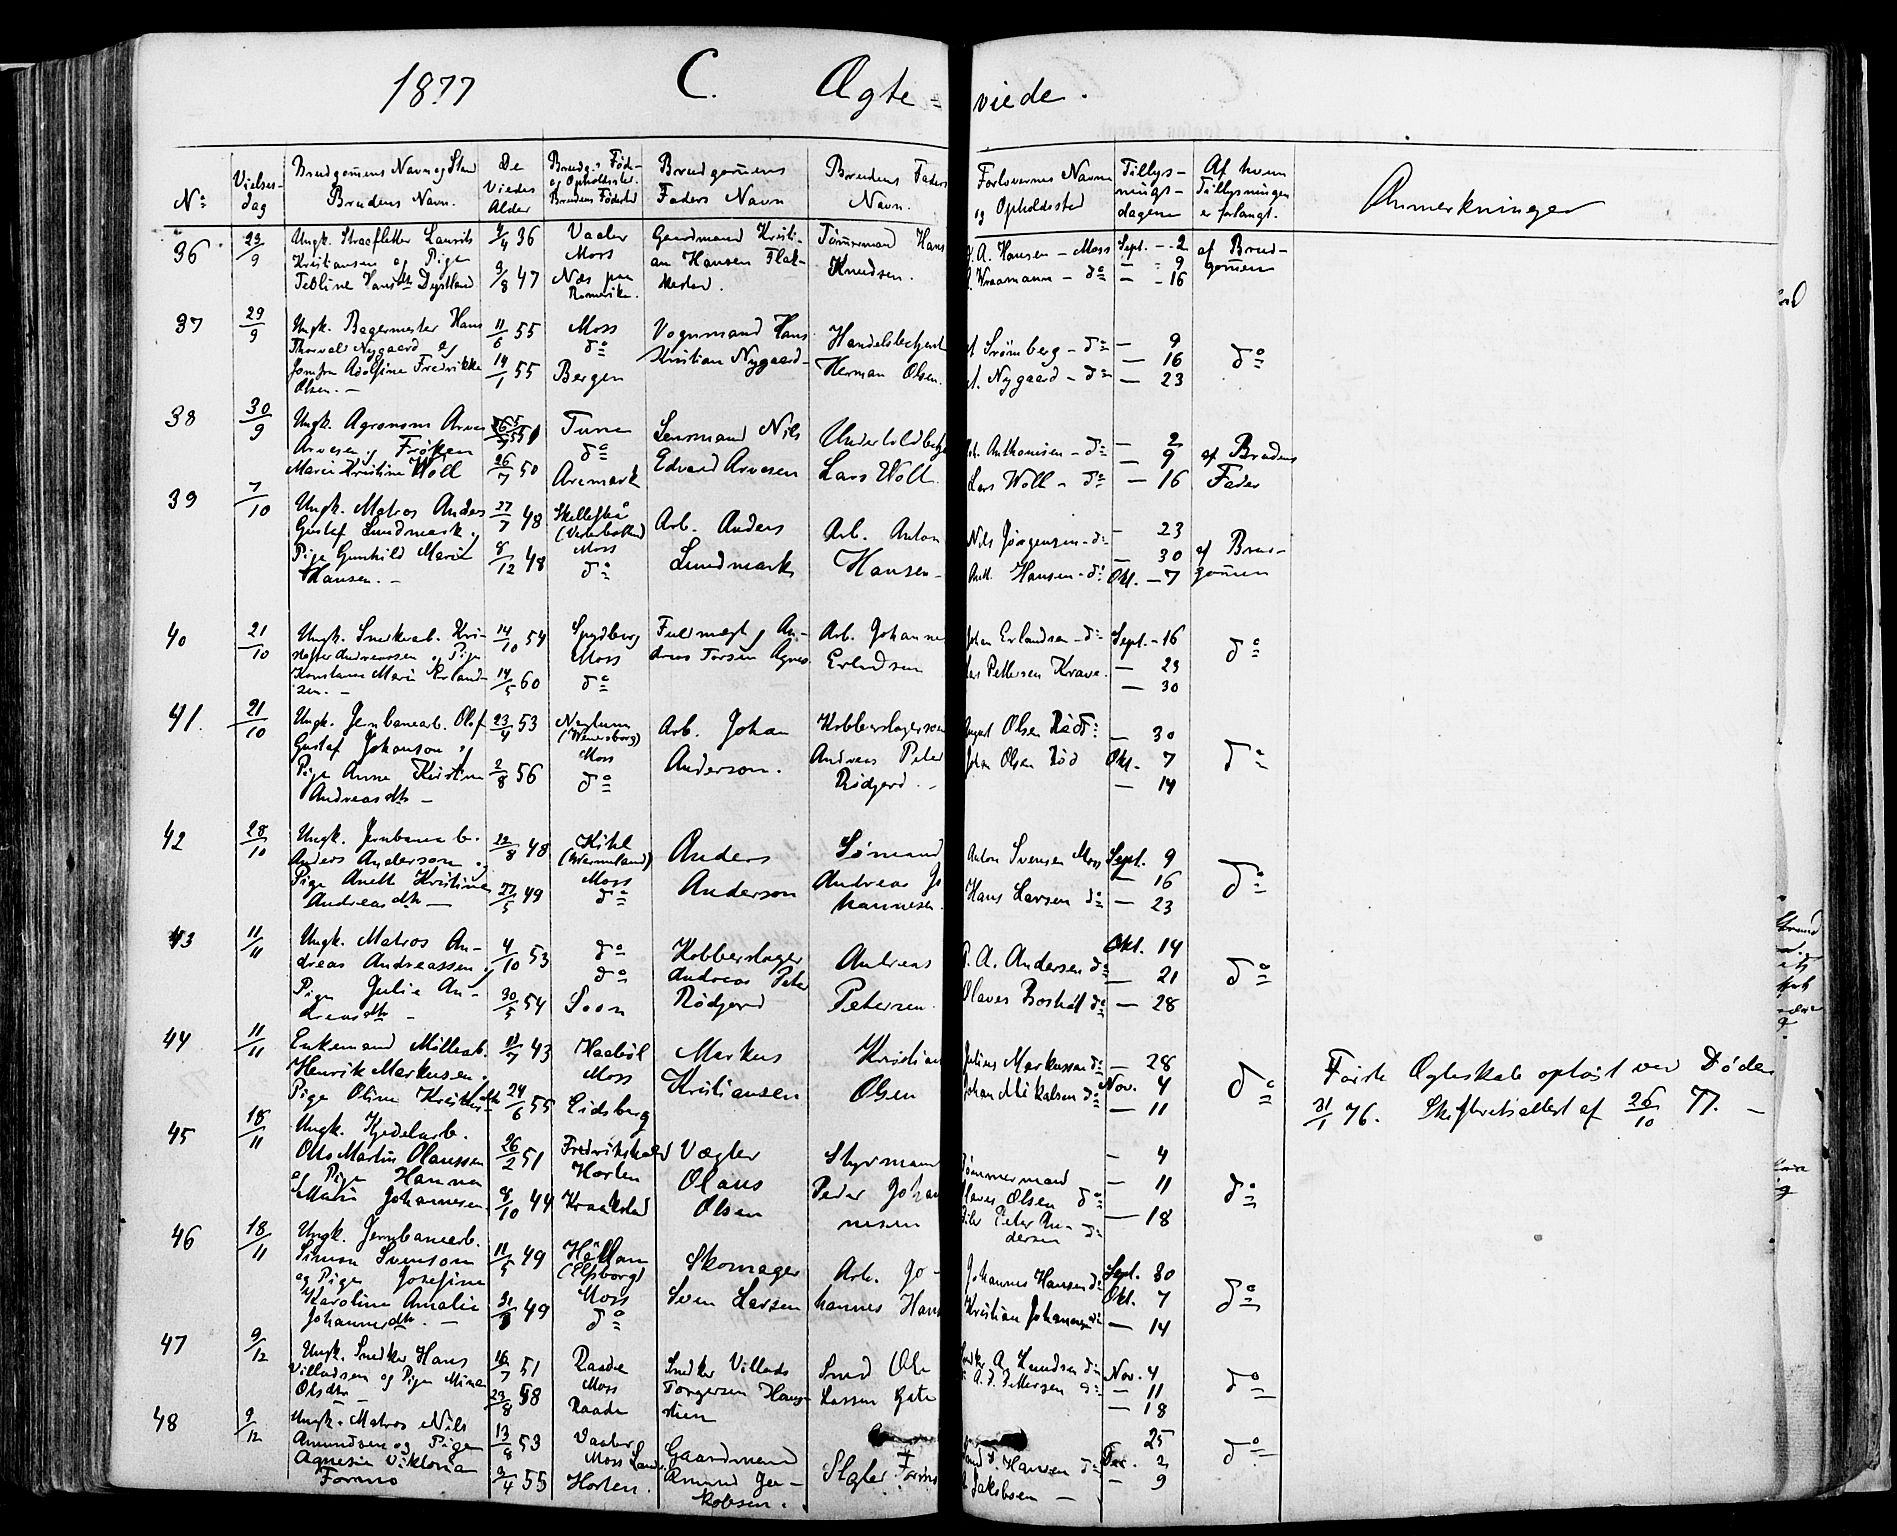 1877 C. Ægte- viede.
No Vielses-dag Brudgomens Navn og Stand Brudens Navn. De Viedes Alder Brudg. Føde- og Opholdssted. Brudens Fødested Brudgomens Faders Navn Brudens Faders Navn. Forlovernes Navne og Opholdssted Tillysningsdagene Af hvem Tillysningen er forlangt. Anmerkninger
36 23/9 Ungk. Lauritz 9/4 36 Vaaler Gaardmand Kristi- Tømmermand Hans A. Hansen - Moss Sept. - 2 af Brud-
Kristiansen og Pige Moss an Hansen Flak- Knudsen. - 9 gomen
Hansdtr 9/8 47 Næs paa Romerike. stad. - do - 16
37 29/9 Ungk. Bagermester Hans 11/6 55 Moss Vognmand Hans Handelsbetjent Strømberg - do - 9
Thorvald Nygaard og do Kristian Nygaard - Herman Olsen. - 16 do
Jomfru Adolfine Fredrikke 14/1 55 Bergen Nygaard - do - 23
Olsen. -
38 30/9 Ungk. Agronom Arve 51 Tune Lensmand Nils Anthonisen - do - 2
Arvesen og Frøken do Edvard Arvesen Lars Woll - 9 af Brudens
Marie Kristine Woll 26/7 50 Aremark Lars Woll - do - 16 Fader
39 7/10 Ungk. Matros Anders 27/7 48 Skellefteå Arb. Anders Arb. Anton Nils Jørgensen - do - 23
Gustaf Lundmark og (Vesterbotten) Lundmark Hansen - - 30 af Brud-
Pige Gunhild Marie 8/12 48 Moss Hansen - do Okt. - 7 gomen
Hansen. - do
40 21/10 Ungk. Snekkerarb. Kri- 14/10 54 Spydberg Fuldmægt. An- Arb. Johannes Johan Erlandsen - do Sept. - 16
stofer Andreassen og Pige Moss dreas Torsen Agnes Erlandsen Pettersen Krave. - 23 do
Konstance Marie Erland- 14/5 60 do - 30
sen. -
41. 21/10 Ungk. Jernbanearb. Olof 23/4 53 (Wenersborg) Arb. Johan Kobberslagersvend August Olsen Rød do - 30
Gustaf Johanson og Moss Anderson. Andreas Peter Johan Olsen Rød Okt. 7 do
Pige Anne Kristine 2/8 56 do Rødgerd. - - 14
Andreasdtr -
42 28/10 Ungk. Jernbanearb. 22/8 48 Kihl Anders Sømand Anton Svensen Moss Sept. 9
Anders Anderson og (Wärmeland) Anderson Andreas Jo - 16 do
Pige Anette Kristine 27/5 49 Moss hannesen. Hans Larsen do - 23
Andreasdtr - do
43 11/11 Ungk. Matros An- 4/10 53 do Kobberslager Andreas P. A. Andersen do Okt. 14
dreas Andreassen og do Andreas Peter Petersen. - 21 do
Pige Julie An- 30/5 54 Soon Rødgerd Olaves do - 28
dreasdtr -
44 11/11 Enkemand Møllearb. 11/7 43 Haabøl Markus Kristian Julius Markussen do - 28 Første Ægteskab opløst ved Døden
Henrik Markusen. Moss Kristiansen Olsen Johan Mikalsen do Nov. 4 do 31/1 76. Skifteretsattest af 26/10 77. -
Pige Oline Kristiansdtr 24/6 55 Eidsberg - 11
45 18/11 Ungk. Kjedelarb. 26/2 51 Fredrikshald Vægter Styrmand Tømmermand - 4
Otto Martin Olaussen Horten Olaus Peder Johan Olaves Olsen do - 11 do
og Pige Hanna 8/10 44 Kraakstad Olsen nesen Peter An- do - 18
Marie Johannesen dersen
46 18/11 Ungk. Jernbanearb. 11/5 49 Skomager Arb. Jo- Johannes Hansen do Sept. 30
Simon Svenson (Elfsborg) Sven Larsen hannes Hans Kristian Johannesen do Okt. 7 do
og Pige Josefine Moss - 14
Karoline Amalie 49 do
Johannesdtr. -
47 9/12 Ungk. Snedker Hans 16/7 51 Raade Snedker Villads Smed Ole Snedker A. Knudsen do Nov. 4
Villadsen og Pige Mina Moss Torgersen Haug- Larsen A. J. Pettersen do - 11 do
Olsdtr - 23/8 58 Raade stien - 18
48 9/12 Ungk. Matros Nils 13/8 53 Vaaler Gaardmand Slagter Forsmo 25 do
Amundsen og Pige Moss Land. Amund Ja- Hansen do Dec. 2
Agnesia Viktoria 9/4 55 Horten. kobsen. Jakobsen - - 9
Forsmo